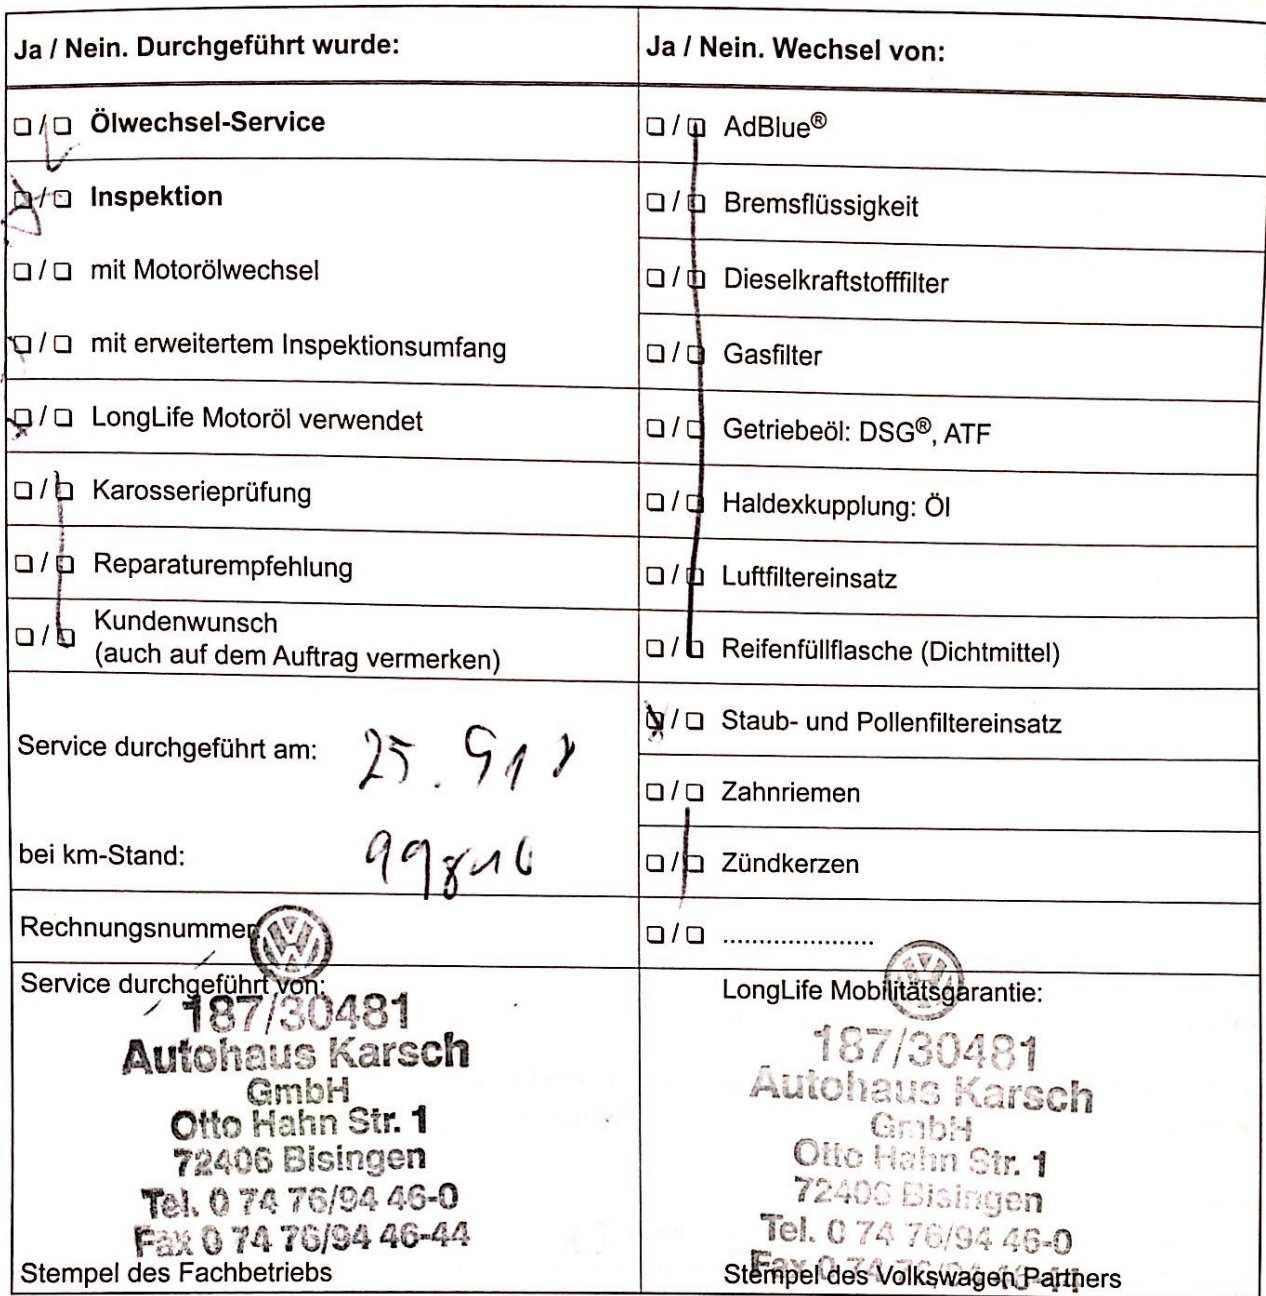 Ja / Nein. Durchgeführt wurde:
□ / □ Ölwechsel-Service
□ / □ Inspektion
□ / □ mit Motorölwechsel
□ / □ mit erweitertem Inspektionsumfang
□ / □ LongLife Motoröl verwendet
□ / □ Karosserieprüfung
□ / □ Reparaturempfehlung
□ / □ Kundenwunsch
(auch auf dem Auftrag vermerken)
Service durchgeführt am: 25.
bei km-Stand:
Rechnungsnummer
Service durchgeführt von:
187/30481
Autohaus Karsch
GmbH
Otto Hahn Str. 1
72406 Bisingen
Tel. 0 74 76/94 46-0
Fax 0 74 76/94 46-44
Stempel des Fachbetriebs
Ja / Nein. Wechsel von:
□ / □ AdBlue®
□ / □ Bremsflüssigkeit
□ / □ Dieselkraftstofffilter
□ / □ Gasfilter
□ / □ Getriebeöl: DSG®, ATF
□ / □ Haldexkupplung: Öl
□ / □ Luftfiltereinsatz
□ / □ Reifenfüllflasche (Dichtmittel)
□ / □ Staub- und Pollenfiltereinsatz
□ / □ Zahnriemen
□ / □ Zündkerzen
□ / □ .....................
LongLife Mobilitätsgarantie:
187/30481
Autohaus Karsch
GmbH
Otto Hahn Str. 1
72406 Bisingen
Tel. 0 74 76/94 46-0
Fax 0 74 76/94 46-44
Stempel des Volkswagen Partners